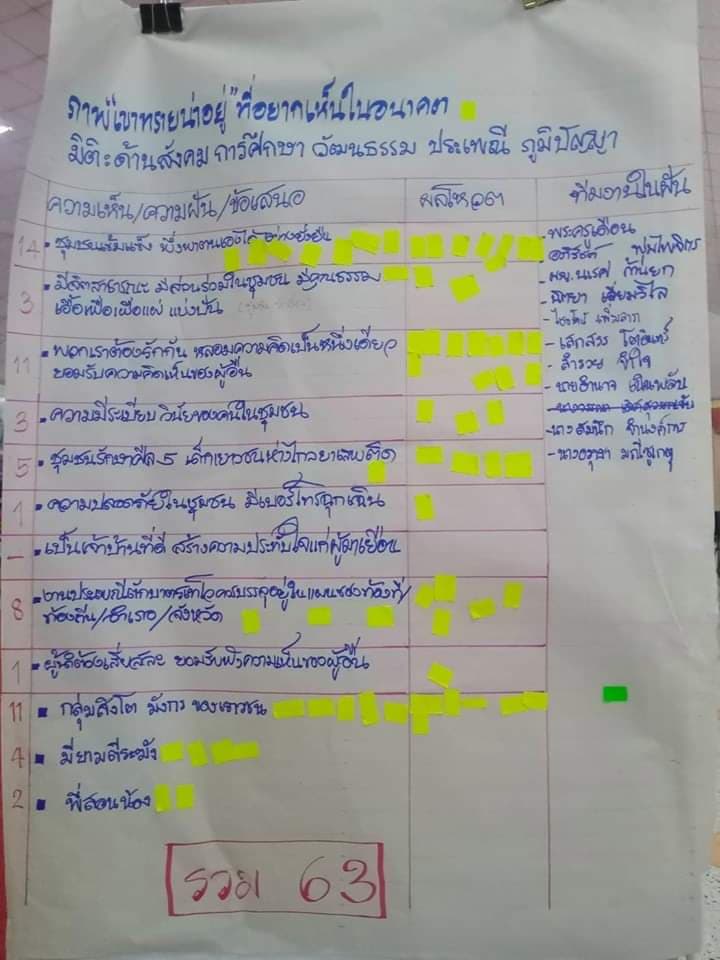 ภาพ "เขาทรายน่าอยู่" ที่อยากเห็นในอนาคต
มิติ:ด้านสังคม การศึกษา วัฒนธรรม ประเพณี ภูมิปัญญา
ความเห็น/ความฝัน/ข้อเสนอ ผลโหวต ทีมงานในฝัน
14 ชุมชนเข้มแข็ง พึ่งพาตนเองได้ อย่างยั่งยืน
3 มีจิตสาธารณะ มีส่วนร่วมในชุมชน มีคุณธรรม
เอื้อเฟื้อเผื่อแผ่ แบ่งปัน
11 พวกเราต้องรักกัน หลอมความคิดเป็นหนึ่งเดียว
ยอมรับความคิดเห็นของผู้อื่น
3 ความมีระเบียบ วินัยของคนในชุมชน
5 ชุมชนรักษาศีล 5 เด็กเยาวชนห่างไกลยาเสพติด
1 ความปลอดภัยในชุมชน มีเบอร์โทรฉุกเฉิน
- เป็นเจ้าบ้านที่ดี สร้างความประทับใจแก่ผู้มาเยือน
8 งานประเพณีตักบาตรเทโวควรบรรลุอยู่ในแผนของท้องที่/
ท้องถิ่น/อำเภอ/จังหวัด
1 ผู้นำต้องเสียสละ ยอมรับฟังความเห็นของผู้อื่น
11 กลุ่มสิงโต มังกร ของเยาวชน
4 มียามตีระฆัง
2 พี่สอนน้อง
- พระครูเดือน
- ผญ.นเรศ
- เสกสรร
- สำรวย
- นายอำนาจ
รวม 63